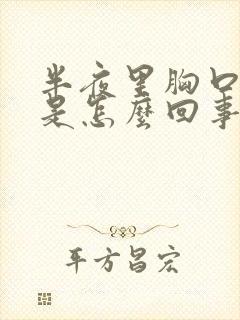 半夜里胸口
是怎麼回事
平方昌宏